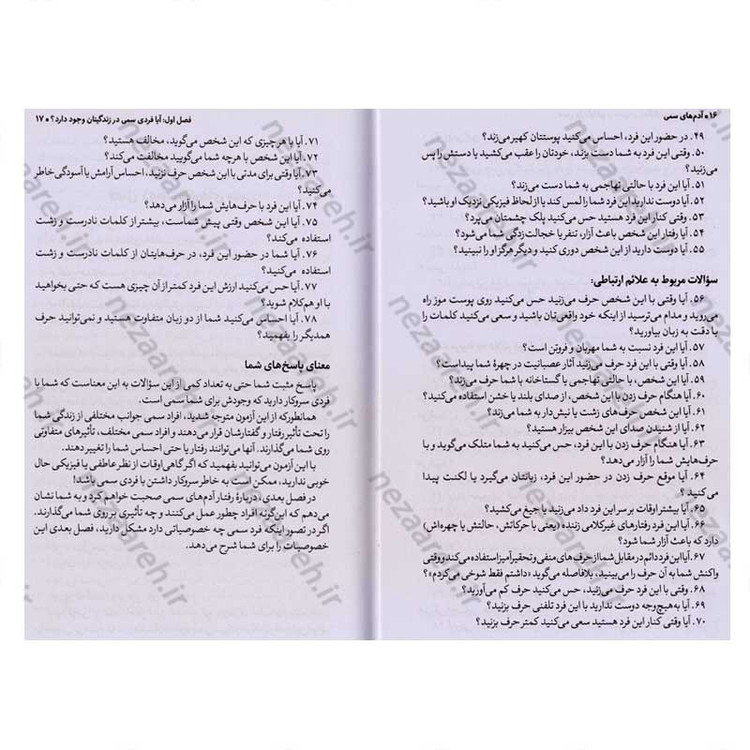 ۱۶ • آدم‌های سمی
۴۹. در حضور این فرد، احساس می‌کنید پوستتان کهیر می‌زند؟
۵۰. وقتی این فرد به شما دست بزند، خودتان را عقب می‌کشید یا دستش را پس
می‌زنید؟
۵۱. آیا این فرد با حالتی تهاجمی به شما دست می‌زند؟
۵۲. آیا دوست ندارید این فرد شما را لمس کند یا از لحاظ فیزیکی نزدیک او باشید؟
۵۳. وقتی کنار این فرد هستید حس می‌کنید پلک چشمتان می‌پرد؟
۵۴. آیا رفتار این شخص باعث آزار، تنفر یا خجالت‌زدگی شما می‌شود؟
۵۵. آیا دوست دارید از این شخص دوری کنید و دیگر هرگز او را نبینید؟
سؤالات مربوط به علائم ارتباطی:
۵۶. آیا وقتی با این شخص حرف می‌زنید حس می‌کنید روی پوست موز راه
می‌روید و مدام می‌ترسید از اینکه خود واقعی‌تان باشید و سعی می‌کنید کلمات را
با دقت به زبان بیاورید؟
۵۷. آیا این فرد نسبت به شما مهربان و فروتن است؟
۵۸. آیا وقتی با این فرد حرف می‌زنید آثار عصبانیت در چهرهٔ شما پیداست؟
۵۹. آیا این شخص، با حالتی تهاجمی یا گستاخانه با شما حرف می‌زند؟
۶۰. آیا هنگام حرف زدن با این شخص، از صدای بلند یا خشن استفاده می‌کنید؟
۶۱. آیا این شخص حرف‌های زشت یا نیش‌دار به شما می‌زند؟
۶۲. آیا از شنیدن صدای این شخص بیزار هستید؟
۶۳. آیا هنگام حرف زدن با این فرد، حس می‌کنید به شما متلک می‌گوید و با
حرف‌هایش شما را آزار می‌دهد؟
۶۴. آیا موقع حرف زدن در حضور این فرد، زبانتان می‌گیرد یا لکنت پیدا
می‌کنید؟
۶۵. آیا بیشتر اوقات بر سر این فرد داد می‌زنید یا جیغ می‌کشید؟
۶۶. آیا این فرد رفتارهای غیرکلامی زننده (یعنی با حرکاتش، حالتش یا چهره‌اش)
دارد که باعث آزار شما شود؟
۶۷. آیا این فرد دائم در مقابل شما از حرف‌های منفی و تحقیرآمیز استفاده می‌کند و وقتی
واکنش شما به آن حرف را می‌بیند، بلافاصله می‌گوید «داشتم فقط شوخی می‌کردم»؟
۶۸. آیا وقتی با این فرد حرف می‌زنید، حس می‌کنید حرف کم می‌آورید؟
۶۹. آیا به‌هیچ‌وجه دوست ندارید با این فرد تلفنی حرف بزنید؟
۷۰. آیا وقتی کنار این فرد هستید سعی می‌کنید کمتر حرف بزنید؟
فصل اول: آیا فردی سمی در زندگیتان وجود دارد؟ • ۱۷
۷۱. آیا با هر چیزی که این شخص می‌گوید، مخالف هستید؟
۷۲. آیا این شخص با هرچه شما می‌گویید مخالفت می‌کند؟
۷۳. آیا وقتی برای مدتی با این شخص حرف نزنید، احساس آرامش یا آسودگی خاطر
می‌کنید؟
۷۴. آیا این فرد با حرف‌هایش شما را آزار می‌دهد؟
۷۵. آیا این شخص وقتی پیش شماست، بیشتر از کلمات نادرست و زشت
استفاده می‌کند؟
۷۶. آیا شما در حضور این فرد، در حرف‌هایتان از کلمات نادرست و زشت
استفاده می‌کنید؟
۷۷. آیا حس می‌کنید ارزش این فرد کمتر از آن چیزی است که حتی بخواهید
با او هم‌کلام شوید؟
۷۸. آیا احساس می‌کنید شما از دو زبان متفاوت هستید و نمی‌توانید حرف
همدیگر را بفهمید؟
معنای پاسخ‌های شما
پاسخ مثبت شما حتی به تعداد کمی از این سؤالات به این معناست که شما با
فردی سروکار دارید که وجودش برای شما سمی است.
همانطورکه از این آزمون متوجه شدید، افراد سمی جوانب مختلفی از زندگی شما
را تحت تأثیر رفتار و گفتارشان قرار می‌دهند و افراد مختلف، تأثیرهای متفاوتی
روی شما می‌گذارند. آنها می‌توانند رفتار یا حتی احساس شما را تغییر دهند.
با این آزمون می‌توانید بفهمید که اگر گاهی اوقات از نظر عاطفی یا فیزیکی حال
خوبی ندارید، ممکن است به خاطر سروکار داشتن با فردی سمی باشد!
در فصل بعدی، دربارهٔ رفتار آدم‌های سمی صحبت خواهم کرد و به شما نشان
می‌دهم که این‌گونه افراد چطور عمل می‌کنند و چه تأثیری بر روی شما می‌گذارند.
اگر در تصور اینکه فرد سمی چه خصوصیاتی دارد مشکل دارید، فصل بعدی این
خصوصیات را برای شما شرح می‌دهد.
nezaareh.ir